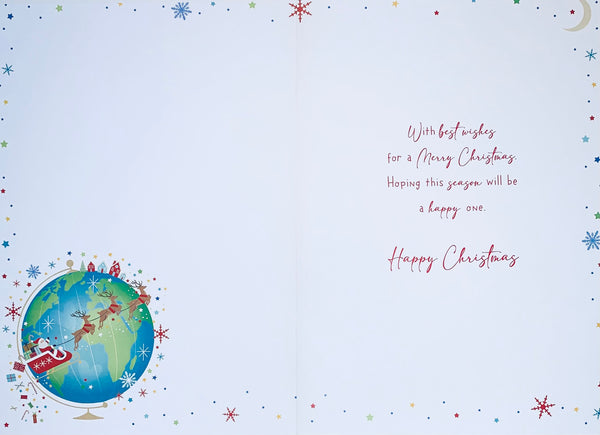 With best wishes
for a Merry Christmas.
Hoping this season will be
a happy one.
Happy Christmas